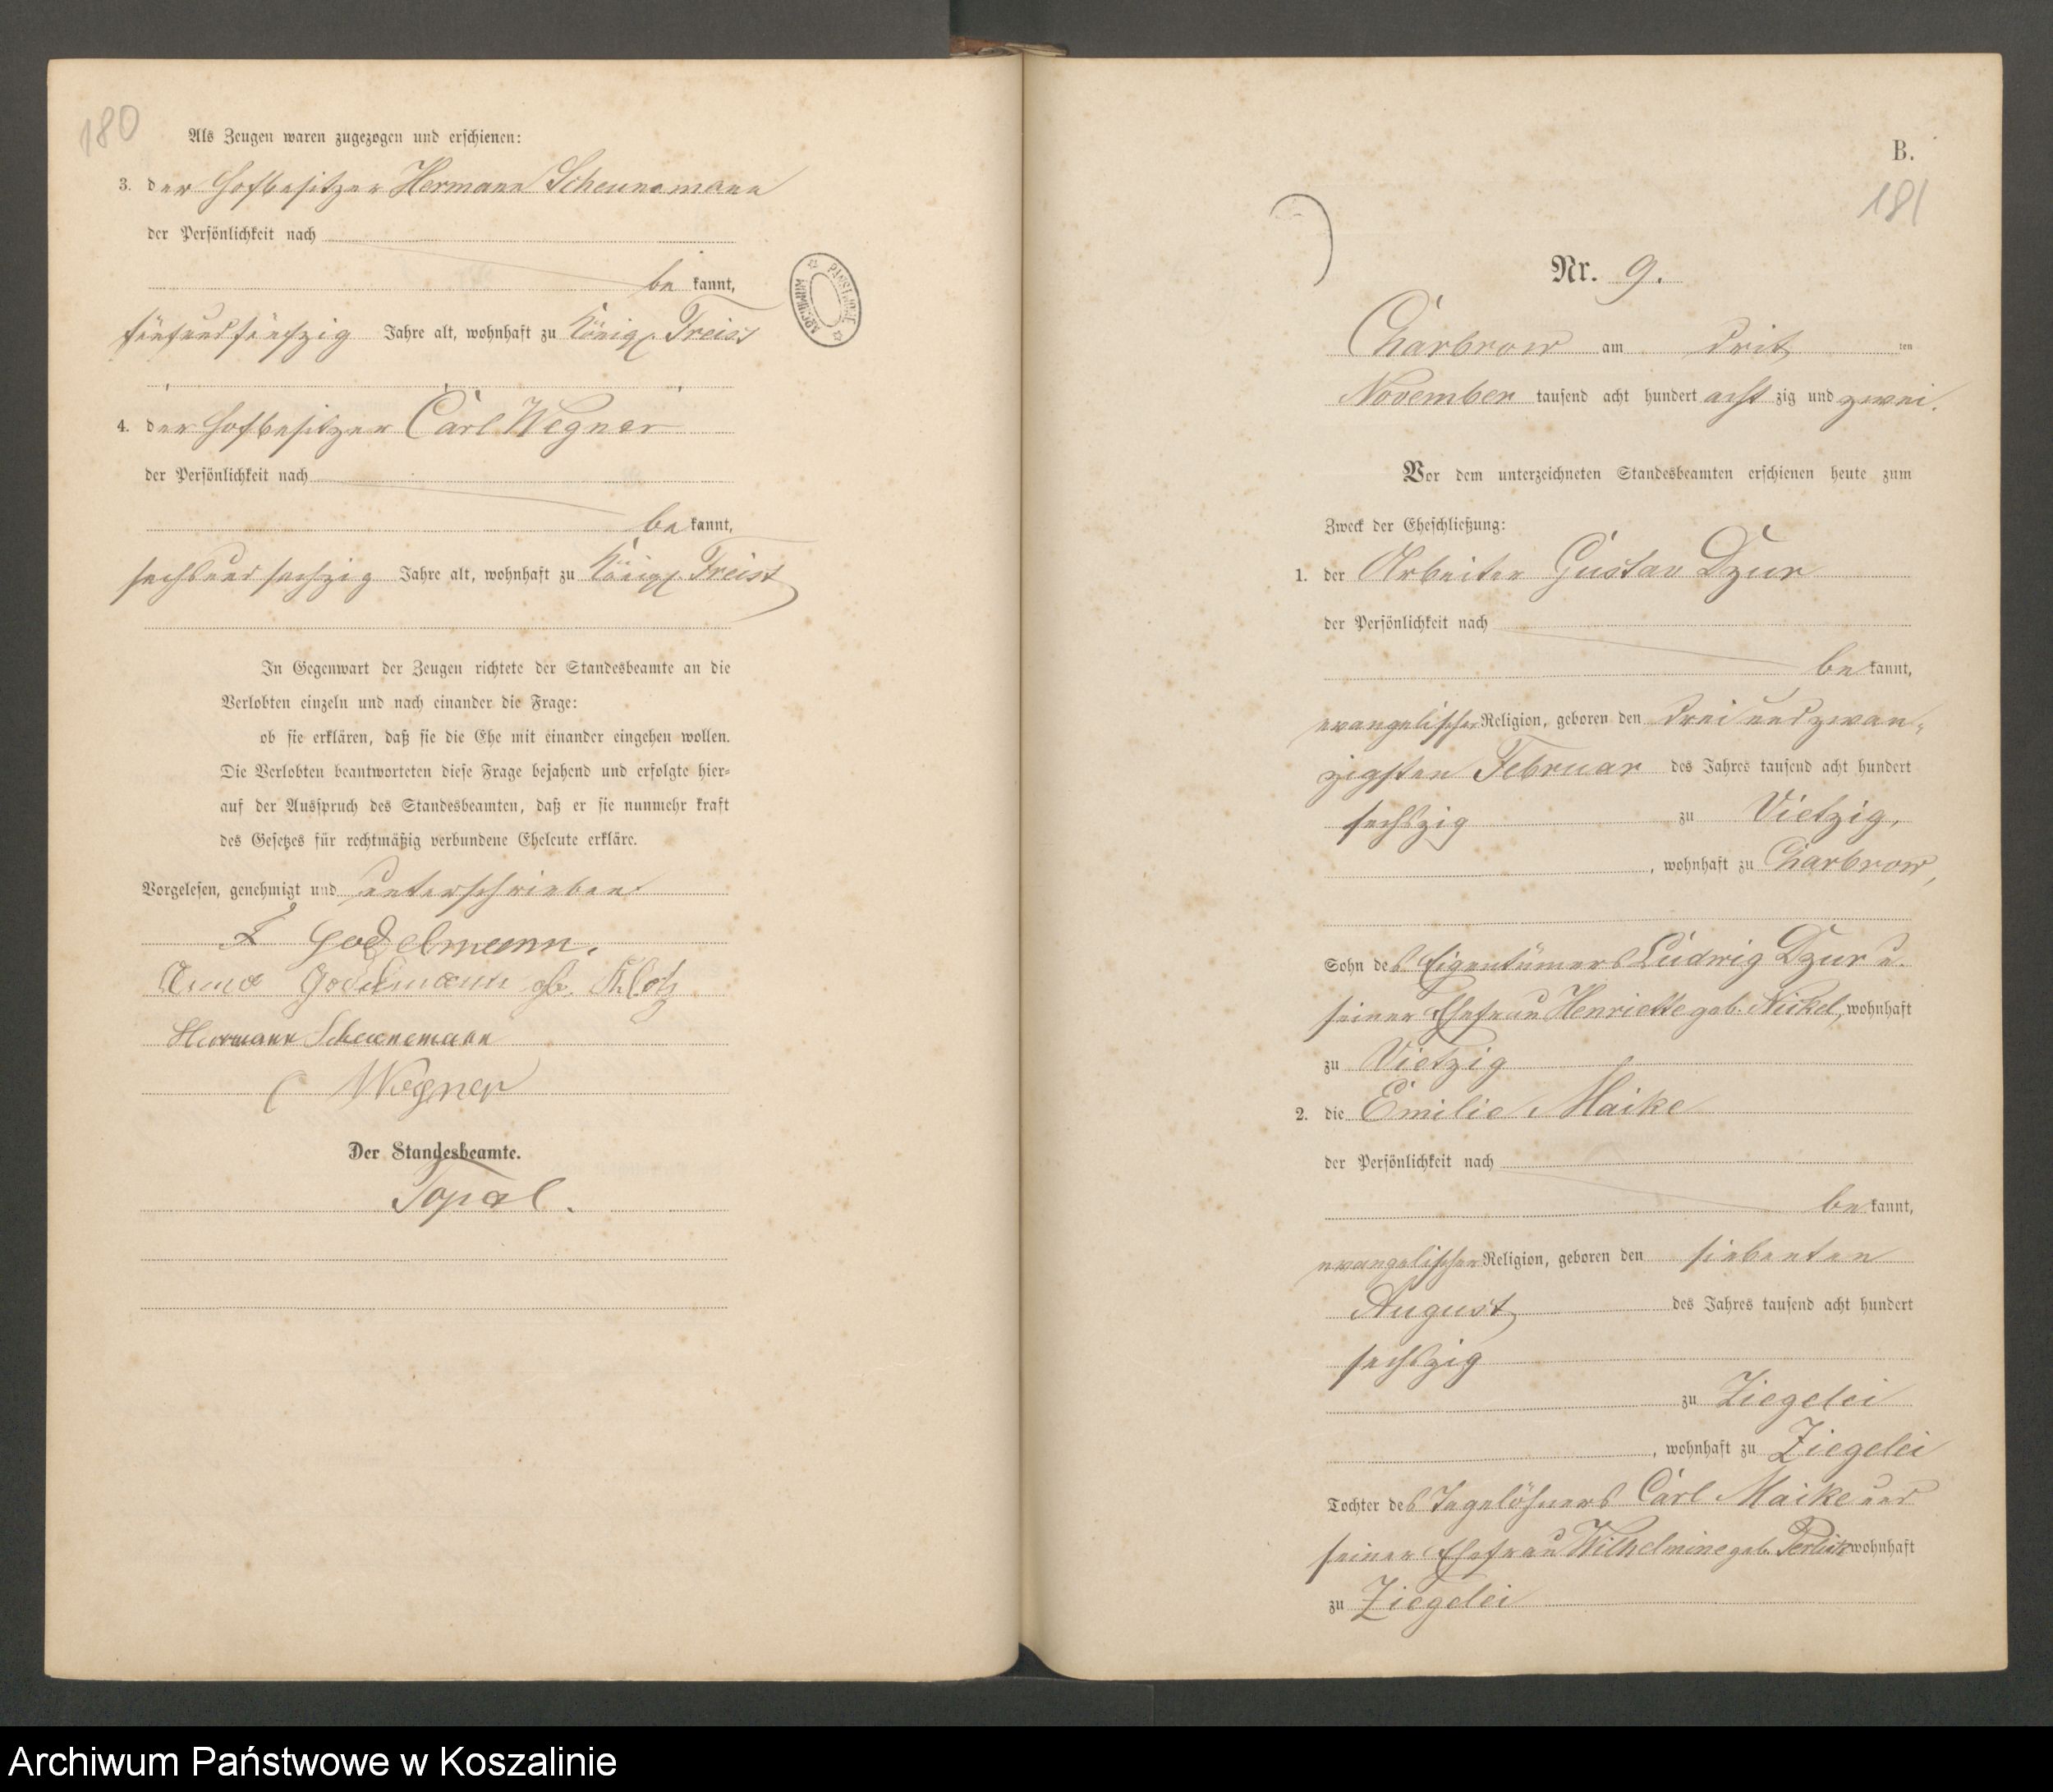 180
Als Zeugen waren zugezogen und erschienen:
3. der Hofbesitzer Hermann Scheunemann
der Persönlichkeit nach
be kannt,
fünfundfünfzig Jahre alt, wohnhaft zu Königl. Freist
4. der Hofbesitzer Carl Wegner
der Persönlichkeit nach
be kannt,
sechsundsechzig Jahre alt, wohnhaft zu Königl. Freist
In Gegenwart der Zeugen richtete der Standesbeamte an die
Verlobten einzeln und nach einander die Frage:
ob sie erklären, daß sie die Ehe mit einander eingehen wollen.
Die Verlobten beantworteten diese Frage bejahend und erfolgte hier=
auf der Ausspruch des Standesbeamten, daß er sie nunmehr kraft
des Gesetzes für rechtmäßig verbundene Eheleute erkläre.
Vorgelesen, genehmigt und unterschrieben
F Godelmann.
Anna Godelmann gb. Klotz
Hermann Scheunemann
C Wegner
Der Standesbeamte.
Topal.
ARCHIWUM PAŃSTWOWE
B.
181
Nr. 9.
Charbrow am drit ten
November tausend acht hundert acht zig und zwei.
Vor dem unterzeichneten Standesbeamten erschienen heute zum
Zweck der Eheschließung:
1. der Arbeiter Gustav Dzur
der Persönlichkeit nach
be kannt,
evangelischer Religion, geboren den dreiundzwan-
zigsten Februar des Jahres tausend acht hundert
sechszig zu Vietzig,
, wohnhaft zu Charbrow,
Sohn des Eigentümers Ludwig Dzur u.
seiner Ehefrau Henriette geb. Nickel, wohnhaft
zu Vietzig
2. die Emilie Maike
der Persönlichkeit nach
be kannt,
evangelischer Religion, geboren den siebenten
August des Jahres tausend acht hundert
sechszig
zu Ziegelei
, wohnhaft zu Ziegelei
Tochter des Tagelöhners Carl Maike und
seiner Ehefrau Wilhelmine geb. Perlick wohnhaft
zu Ziegelei
Archiwum Państwowe w Koszalinie